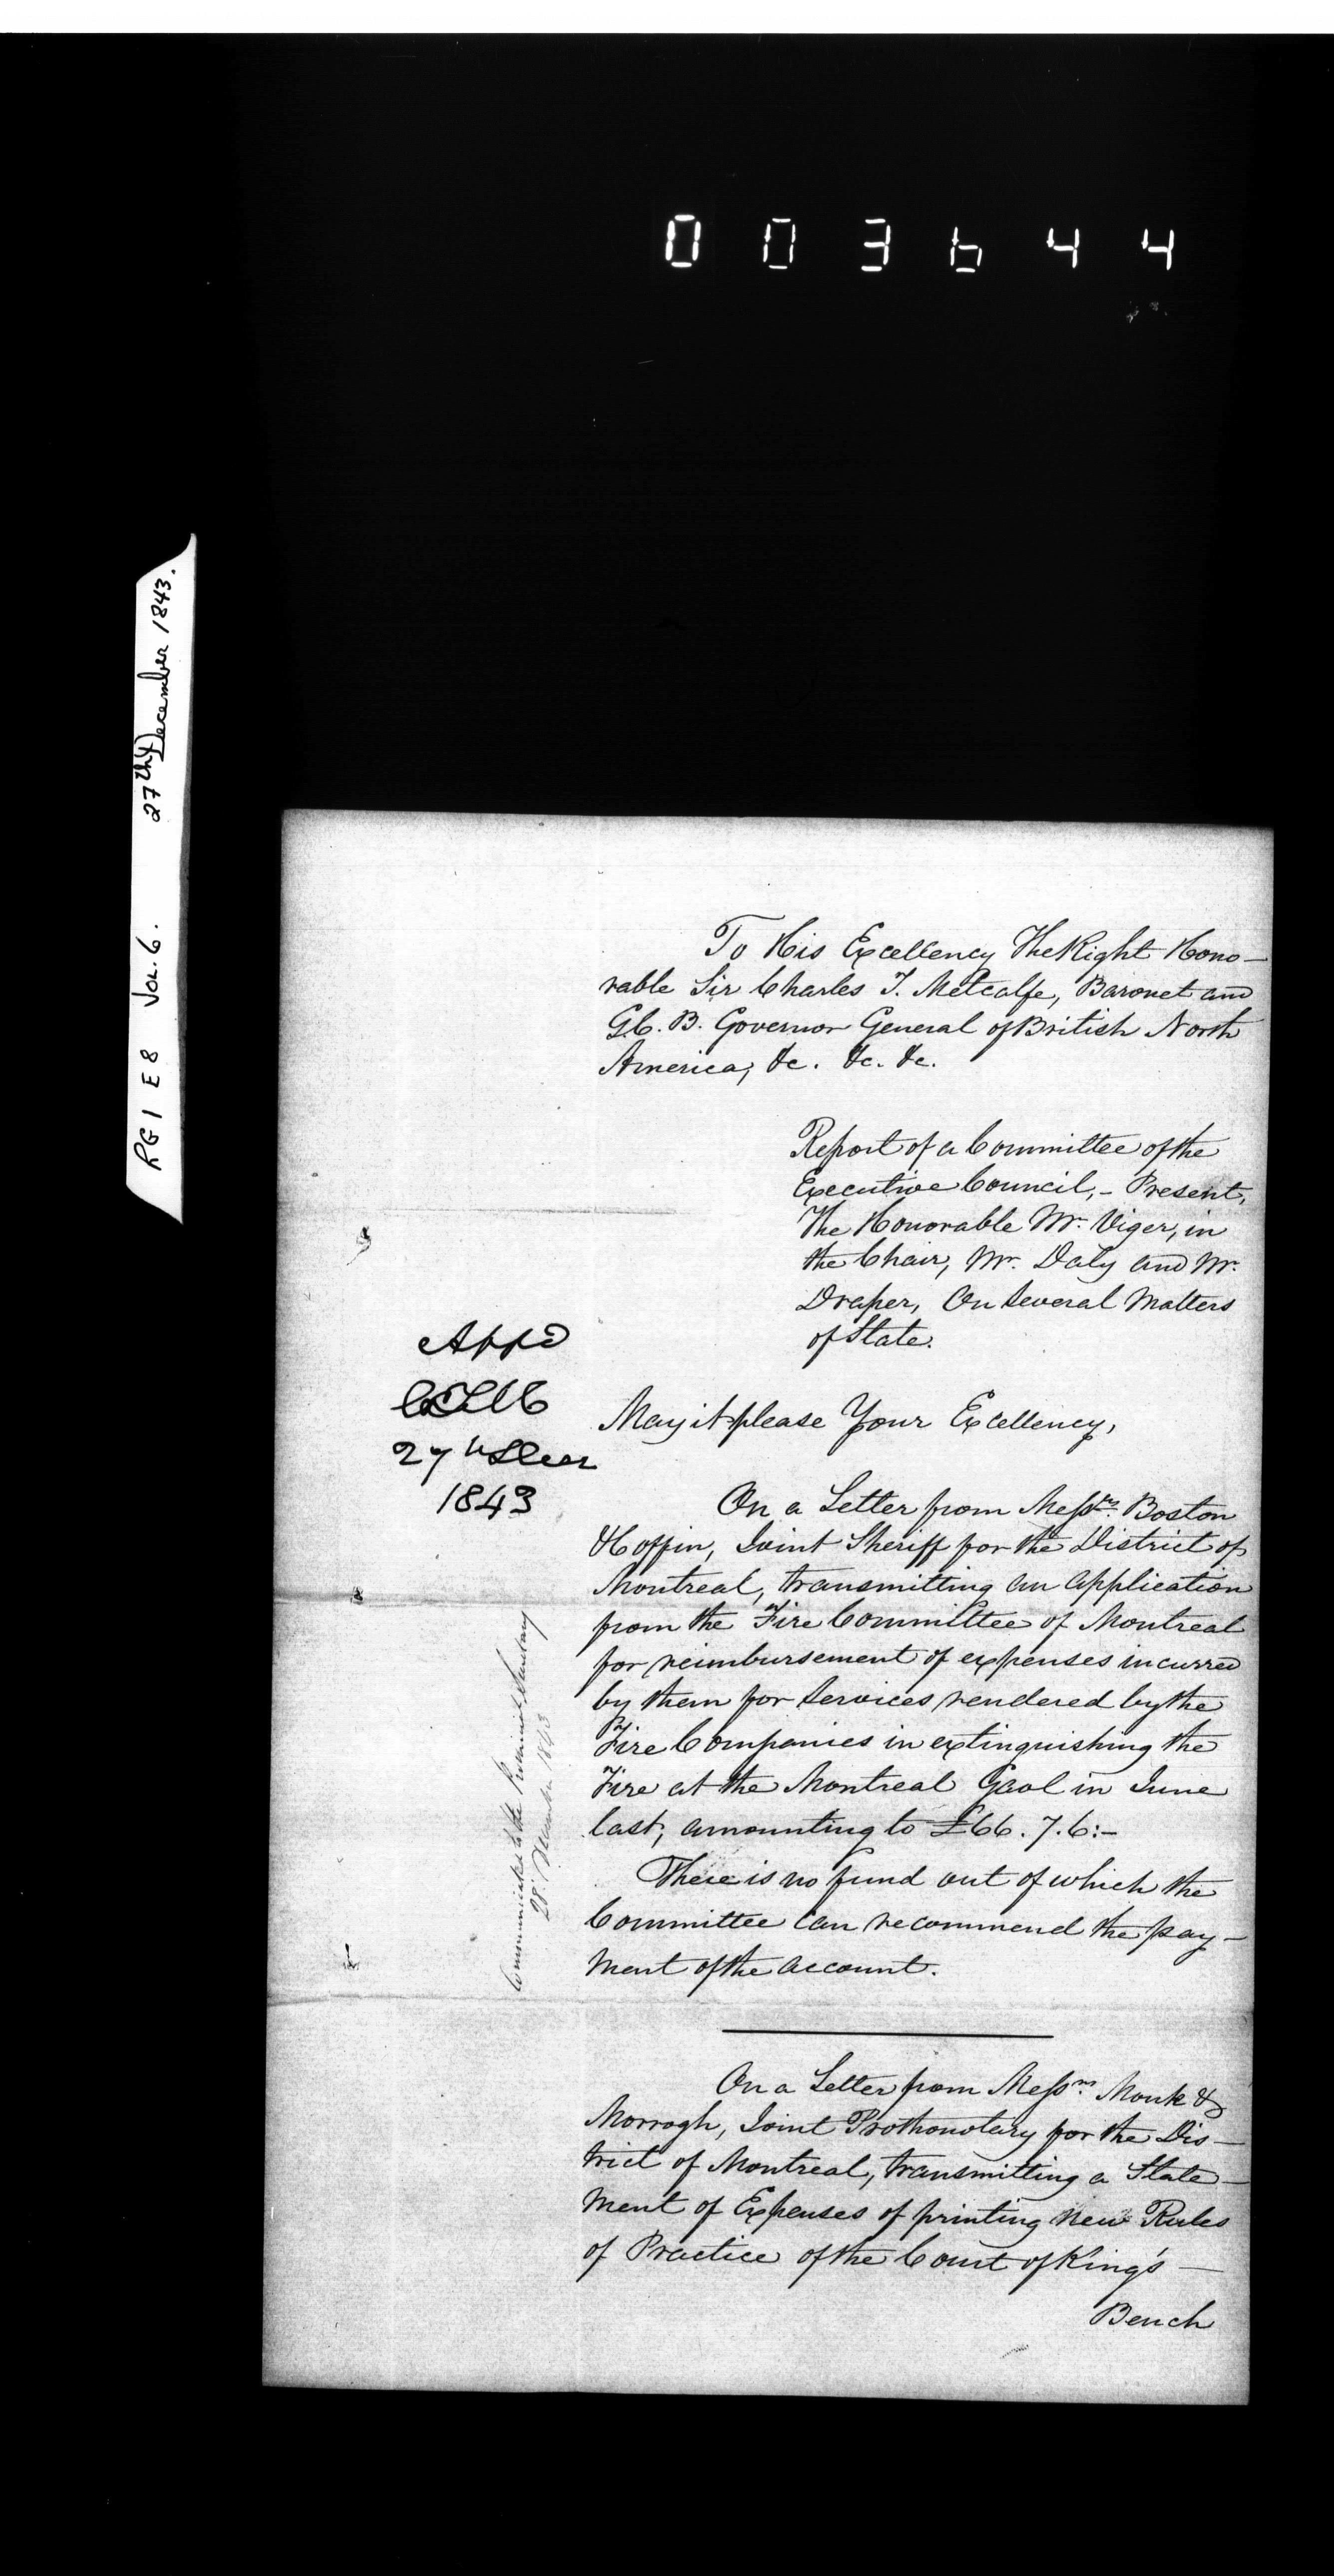 003644
RG 1 E 8 Vol. 6. 27th December 1843.
To His Excellency The Right Hono-
rable Sir Charles T. Metcalfe, Baronet and
G.C.B. Governor General of British North
America, &c. &c. &c.
Report of a Committee of the
Executive Council,- Present,
The Honorable Mr. Viger, in
the Chair, Mr. Daly and Mr.
Draper, On Several Matters
of State.
Appd
CTM
27th Decr
1843
May it please Your Excellency,
On a Letter from Messrs. Boston
& Coffin, Joint Sheriff for the District of
Montreal, transmitting an application
from the Fire Committee of Montreal
for reimbursement of expenses incurred
by them for Services rendered by the
Fire Companies in extinguishing the
Fire at the Montreal Gaol in June
last, amounting to £66. 7. 6:-
There is no fund out of which the
Committee can recommend the pay-
ment of the account.
Communicated to the Provincial Secretary
28 December 1843
On a Letter from Messrs. Monk &
Morrogh, Joint Prothonotary for the Dis-
trict of Montreal, transmitting a State-
ment of Expenses of printing new Rules
of Practice of the Court of King's -
Bench